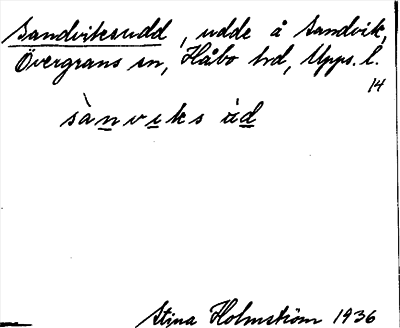 Sandviksudd, udde å Sandvik,
Övergrans sn, Håbo hd, Upps. l.
14
sànviks ùd
Stina Holmström 1936